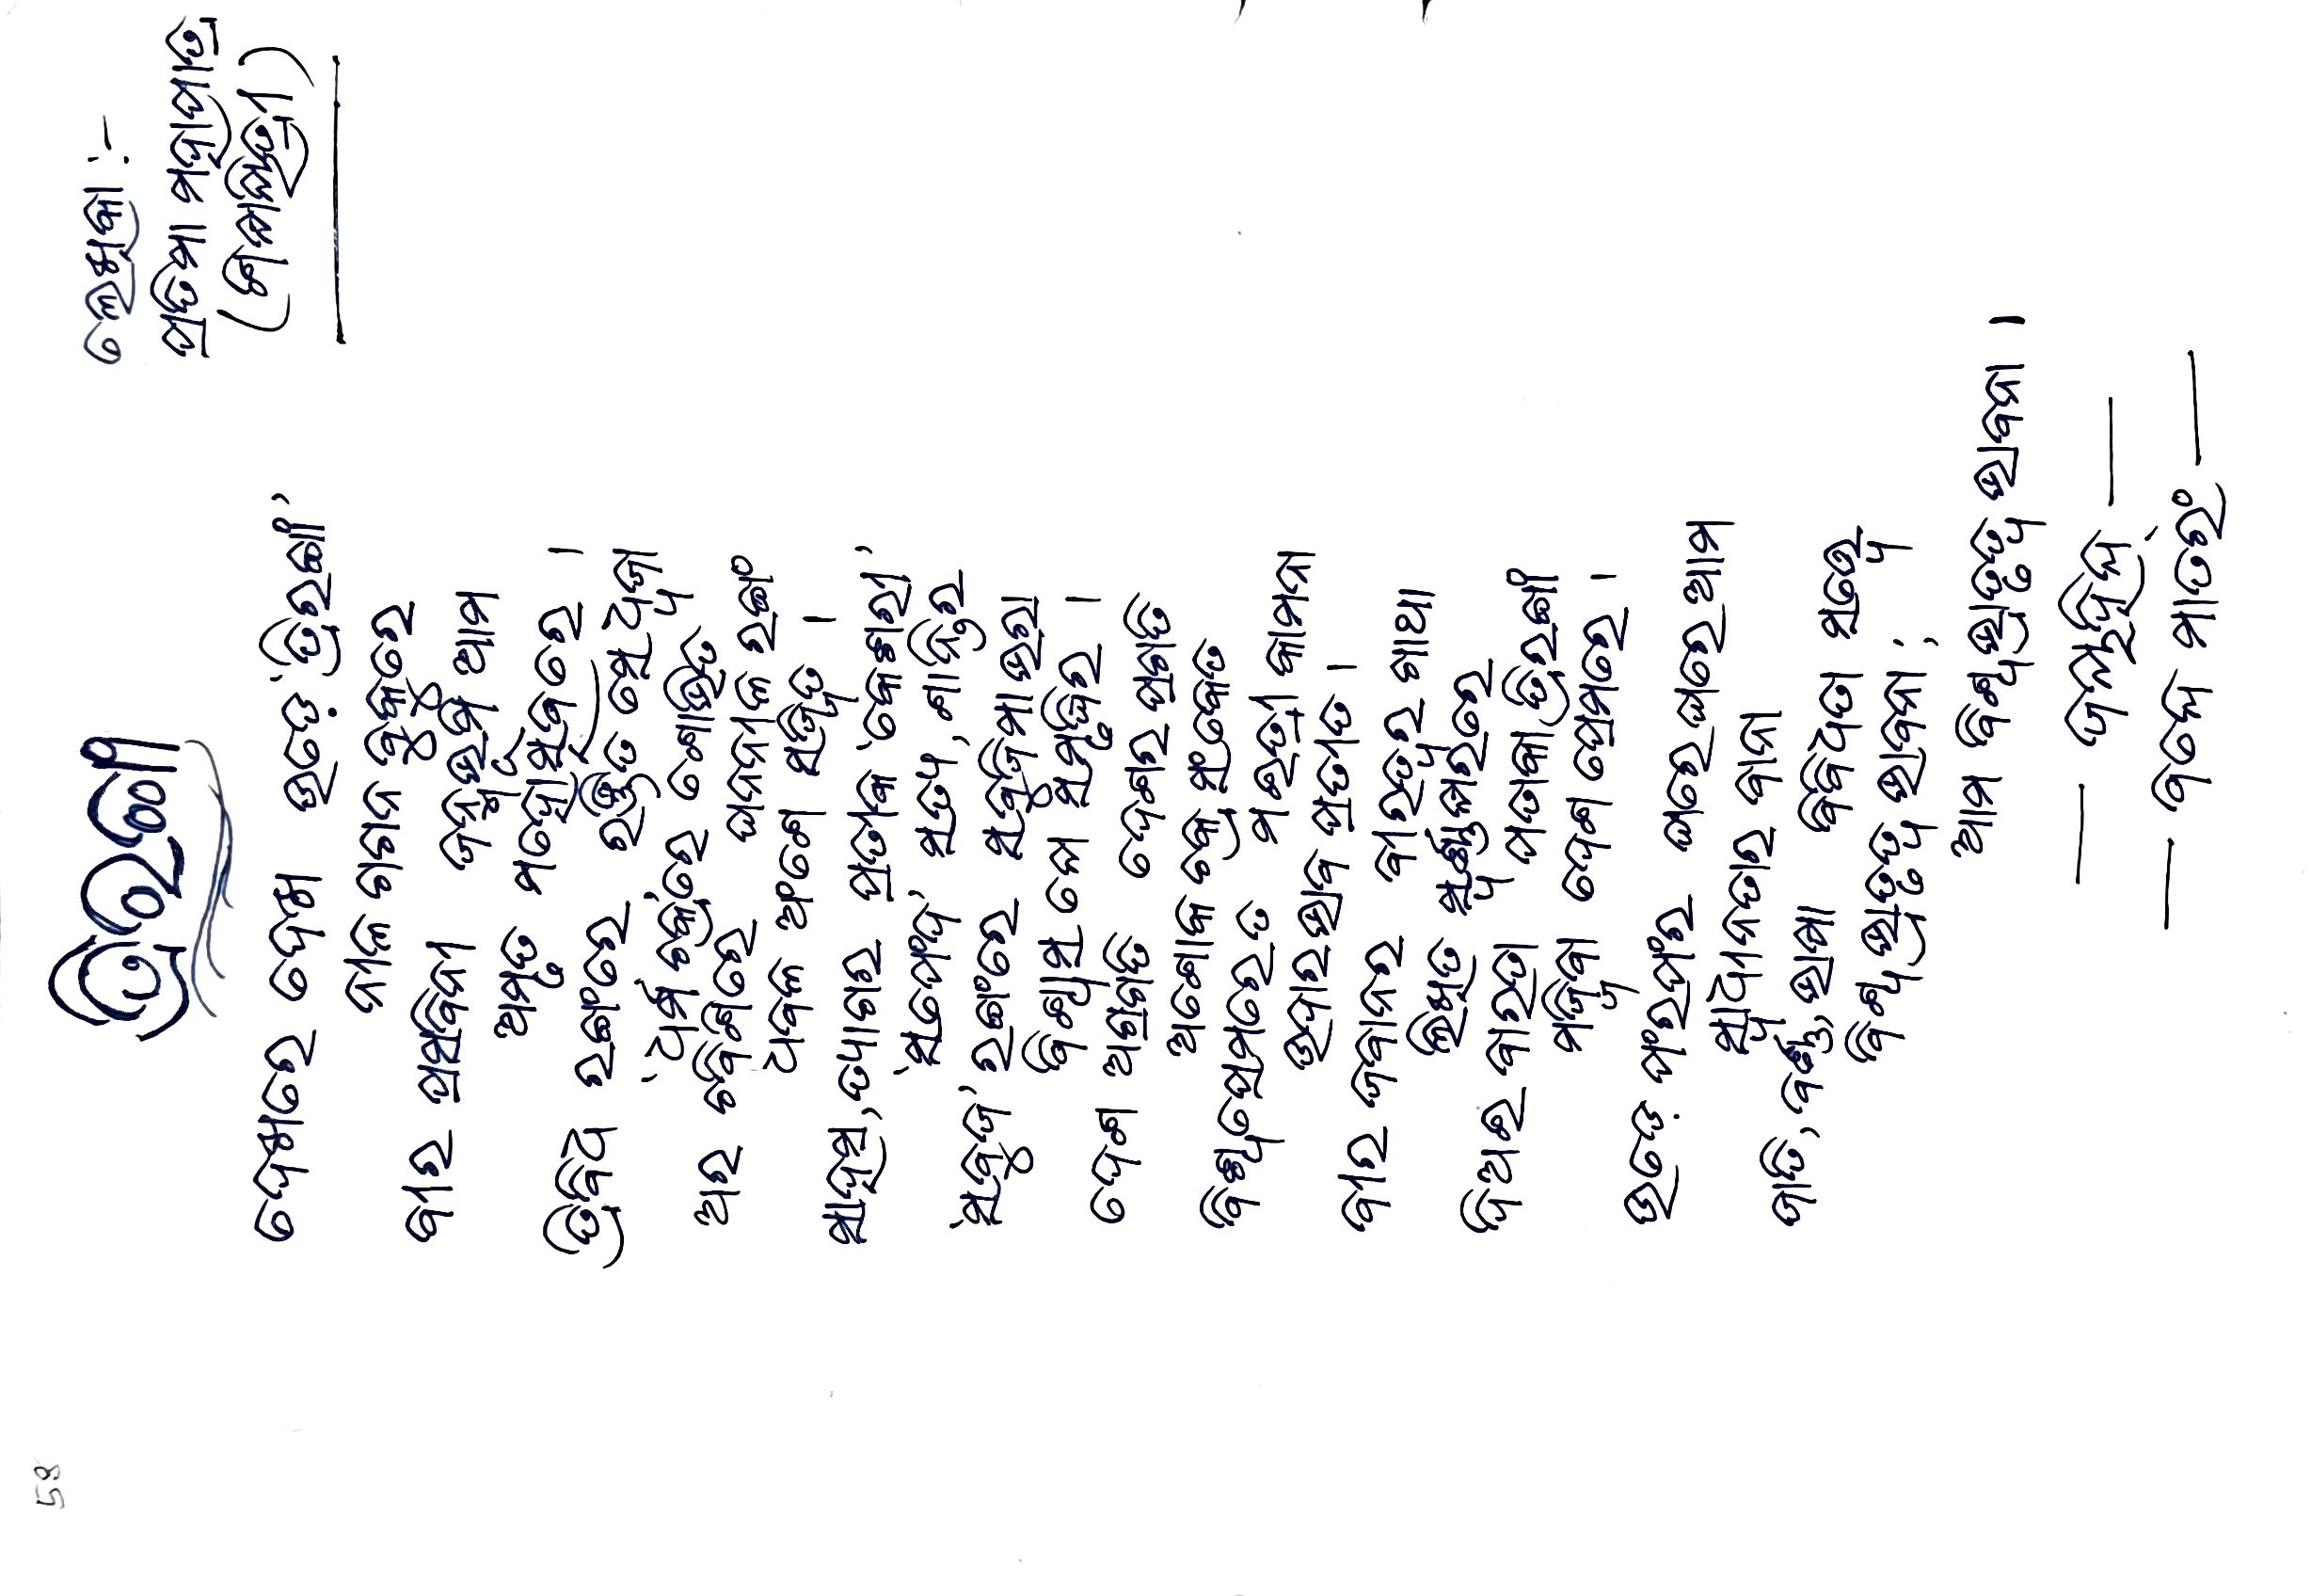 58
ତ୍ରିରଙ୍ଗା
ଲେଖିକା :-
ପ୍ରତିମା ମହାପାତ୍ର
(ଶିକ୍ଷୟିତ୍ରୀ)
ଦେଖରେ ଦେଖ ଉଡ଼େ 'ତ୍ରିରଙ୍ଗା'
ନୀଳ ଗଗନ ବୁକୁରେ
ବୀର ପ୍ରସବିନୀ ଜନ୍ମଭୂମି ଆମ
ଅମୃତ ମହୋତ୍ସବରେ ।
ତ୍ରିବିଧ ରଙ୍ଗରେ ରଞ୍ଜିତ ସେ ଧ୍ୱଜା
'ଧର୍ମ ଚକ୍ର'ରେ ଶୋଭିତ
ଅର ଚବିଶିରେ ଘନନୀଳ ରଙ୍ଗ
ଧବଳ ଅଂଶେ ସଜ୍ଜିତ ।
ସାହସ, ତ୍ୟାଗର ପ୍ରତୀକ 'କେଶରୀ'
'ସଫେଦ' ସତ୍ୟ, ଶାନ୍ତିର
'ସବୁଜ' ରଙ୍ଗରେ ସବୁଜିମା ଭରା
ବିଶ୍ୱାସ ସେ ସମୃଦ୍ଧିର ।
ଦେଶ ଅଗ୍ରଗତି ଦେଶର ପ୍ରଗତି
ଅଶୋକ ଚକ୍ର ସଂକେତ
ବିଶ୍ୱପ୍ରେମରେ ତ ମଇତ୍ରୀ କାମନା
ଉଦାର ଭାବ ପ୍ରତୀତ ।
ବୀର ଜବାନର ବୀରତ୍ୱର ଗାଥା
ଲିଖିତ ସ୍ୱର୍ଣ୍ଣାକ୍ଷରରେ
ଦିଅଇ ବାରତା ପତାକା ତ୍ରିରଙ୍ଗା
ମଜ୍ଜିବା ଦେଶ ପ୍ରେମରେ ।
ଉଡ଼େ ଫରଫର ଘରେ ଘରେ ଆମ
ସ୍ୱାଧୀନତାର ବାନା
ଜାତି, ବର୍ଣ୍ଣ, ଭାଷା ବିବିଧତା ସତ୍ତ୍ୱେ
ବିଶ୍ୱଭ୍ରାତୃତ୍ୱ ଭାବନା ;
ଆମ ବିଶ୍ୱଭ୍ରାତୃତ୍ୱ ଭାବନା ।
— ଜୟହିନ୍ଦ —
— ବନ୍ଦେ ମାତରଂ —